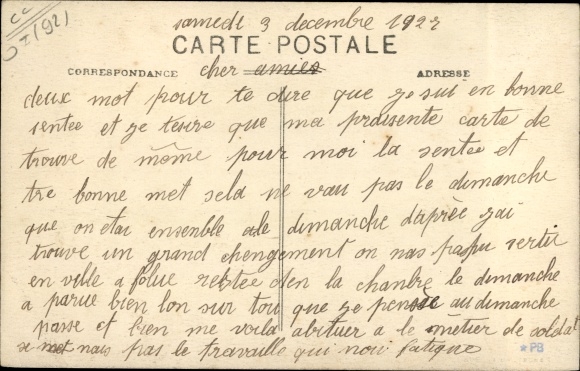 samedi 3 decembre 1927
CARTE POSTALE
CORRESPONDANCE
cher amies
ADRESSE
deux mot pour te dire que ge sui en bonne
sentee et ge tesire que ma prаissente carte de
trouve de mâme pour moi la sentee et
tre bonne met sela ne vau pas le dimanche
que on etai ensemble ale dimanche daprèe gai
trouve un grand chengement on nas pas pu sertir
en ville a falue restee den la chanbre le dimanche
a parue bien lon sur tou que ge pense au dimanche
passe et bien me voila abituer a le mêtier de soldat
se met nais pas le travaille qui nou fatigue
*PB